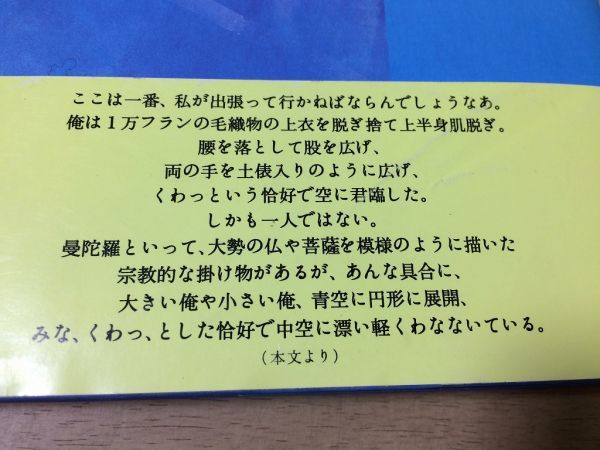 ここは一番、私が出張って行かねばならんでしょうなあ。
俺は1万フランの毛織物の上衣を脱ぎ捨て上半身肌脱ぎ。
腰を落として股を広げ、
両の手を土俵入りのように広げ、
くわっという恰好で空に君臨した。
しかも一人ではない。
曼陀羅といって、大勢の仏や菩薩を模様のように描いた
宗教的な掛け物があるが、あんな具合に、
大きい俺や小さい俺、青空に円形に展開、
みな、くわっ、とした恰好で中空に漂い軽くわなないている。
(本文より)